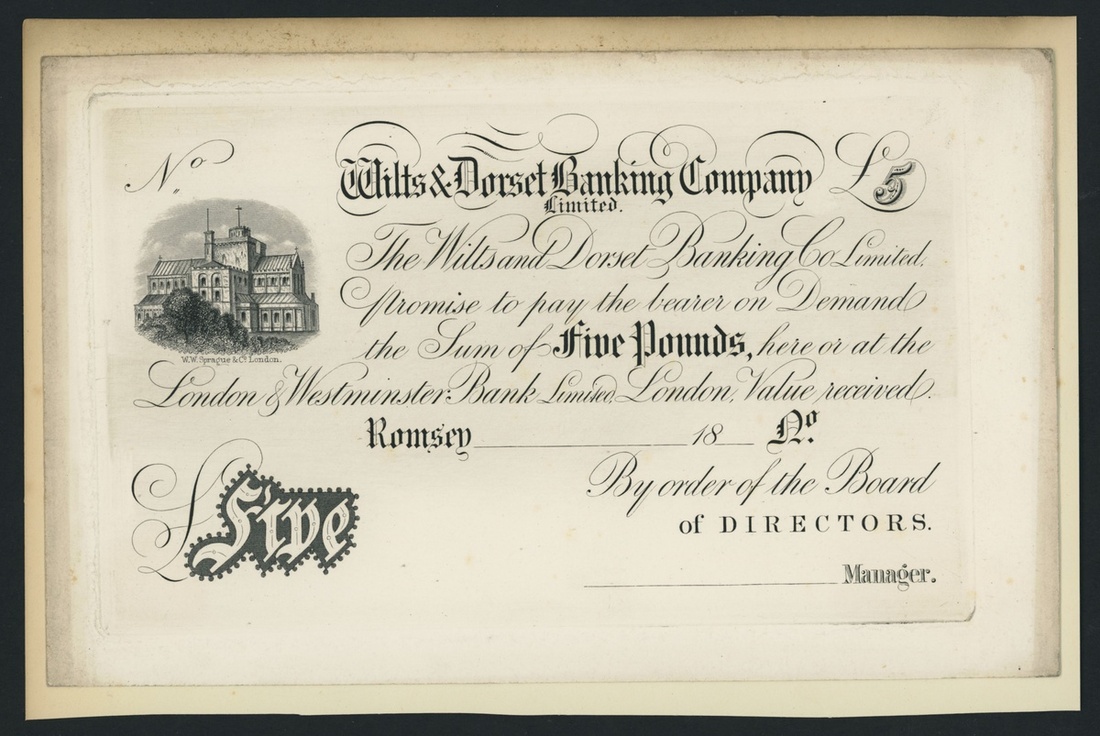 No.
Wilts & Dorset Banking Company
Limited.
£5
The Wilts and Dorset Banking Co Limited,
Promise to pay the bearer on Demand
the Sum of Five Pounds, here or at the
W.W. Sprague & Co. London.
London & Westminster Bank Limited, London, Value received.
Romsey 18 No.
By order of the Board
of DIRECTORS.
£ Five
Manager.